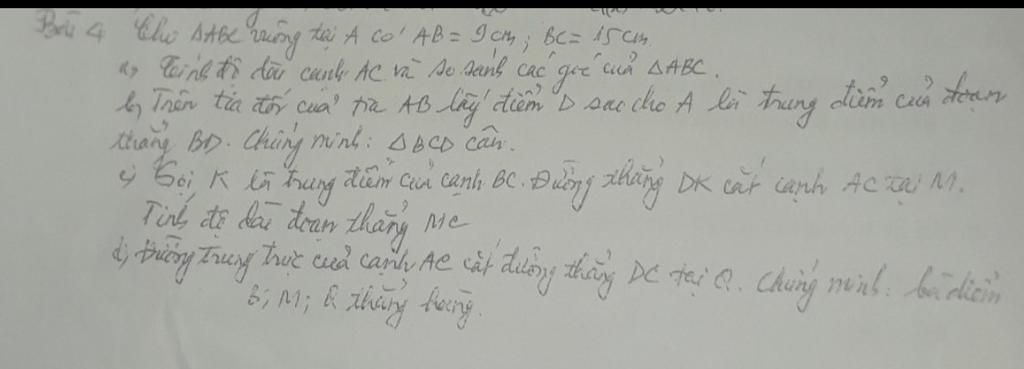 Bài 4 Cho ΔABC vuông tại A có AB = 9cm; BC = 15cm.
a, Tính độ dài cạnh AC và so sánh các góc của ΔABC.
b, Trên tia đối của tia AB lấy điểm D sao cho A là trung điểm của đoạn
thẳng BD. Chứng minh: ΔBCD cân.
c, Gọi K là trung điểm của cạnh BC. Đường thẳng DK cắt cạnh AC tại M.
Tính độ dài đoạn thẳng MC
d, Đường trung trực của cạnh AC cắt đường thẳng DC tại Q. Chứng minh: ba điểm
B; M; Q thẳng hàng.